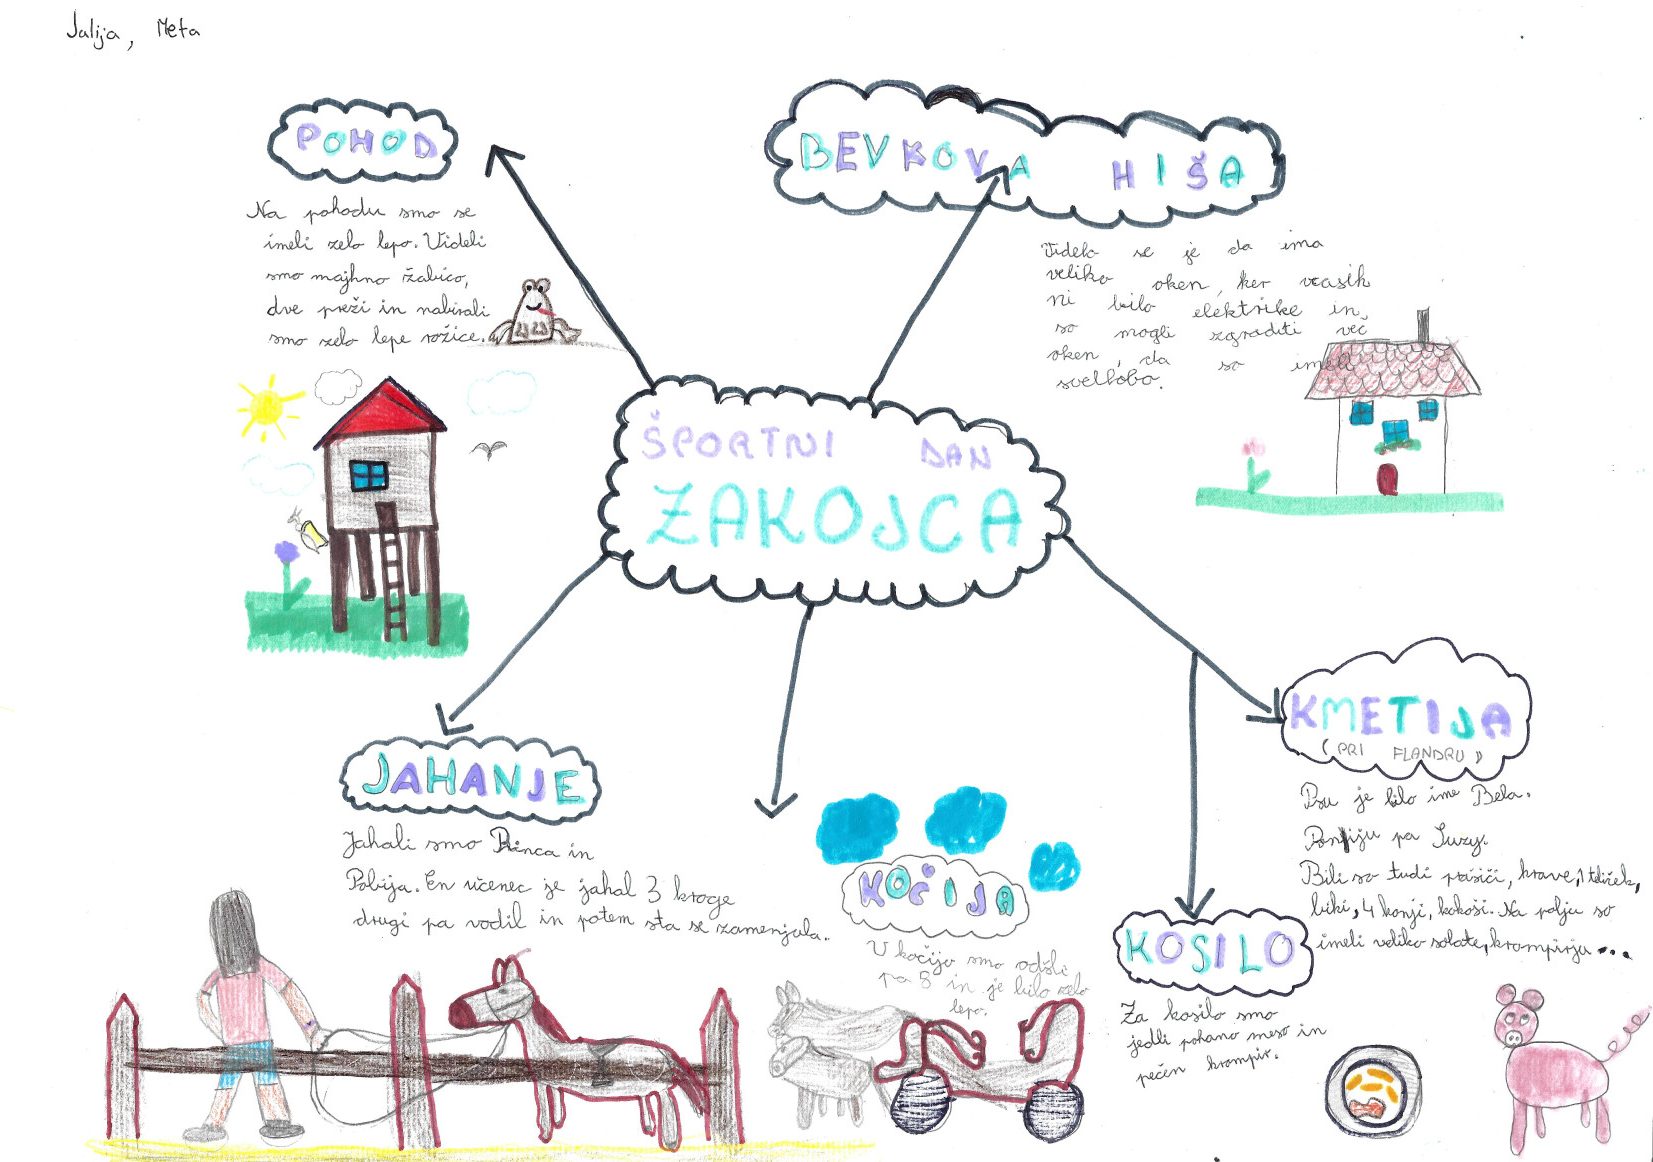 Julija, Meta
POHOD
Na pohodu smo se
imeli zelo lepo. Videli
smo majhno žabico,
dve preži in nabirali
smo zelo lepe rožice.
BEVKOVA HIŠA
Videlo se je da ima
veliko oken, ker včasih
ni bilo elektrike in,
so mogli zgraditi več
oken, da so imeli
svetlobo.
ŠPORTNI DAN
ZAKOJCA
JAHANJE
Jahali smo Princa in
Pobija. En učenec je jahal 3 kroge
drugi pa vodil in potem sta se zamenjala.
KOČIJA
V kočijo smo odšli
po 5 in je bilo zelo
lepo.
KOSILO
Za kosilo smo
jedli pohano meso in
pečen krompir.
KMETIJA
(PRI FLANDRU)
Psu je bilo ime Bela.
Ponyju pa Suzy.
Bili so tudi prašiči, krave, 1 teliček,
biki, 4 konji, kokoši. Na polju so
imeli veliko solate, krompirju...